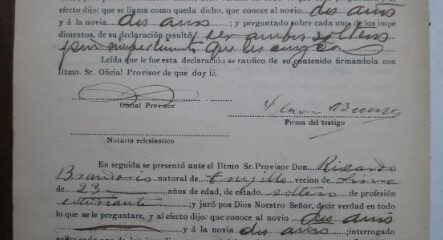 efecto dijo: que se llama como queda dicho, que conoce al novio dos años
y á la novia dos años ; y preguntado sobre cada uno de los impe
dimentos, de su declaración resultó ser ambos solteros
sin impedimento que les
Leída que le fue esta declaración se ratifico de su contenido firmandola con
Iltmo. Sr. Oficial Provisor de que doy fé.
Oficial Provisor
Firma del testigo
Notario eclesiastico
En seguida se presentó ante el Iltmo Sr. Provisor Don Ricardo
natural de Trujillo vecino de Lima
de 23 años de edad, de estado soltero de profesión
estudiante y juró por Dios Nuestro Señor, decir verdad en todo
lo que se le preguntare, y al efecto dijo: que conoce al novio dos años
y á la novia dos años ; interrogado